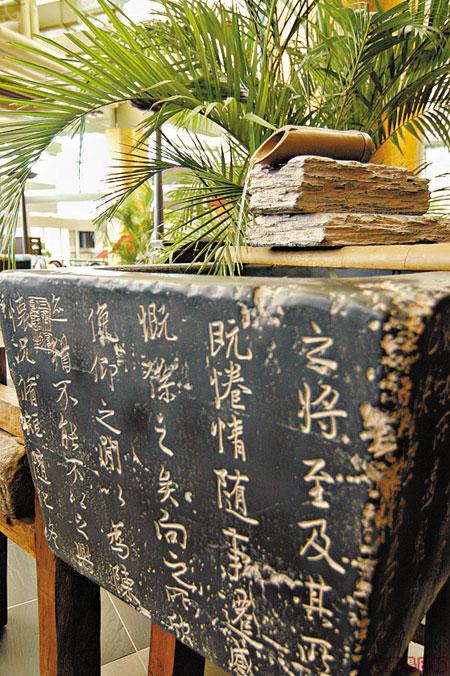 之將至及其所
既惓情隨事遷感
慨係之矣向之所
俛仰之閒以為陳
猶不能不以之興
懷況脩短隨化